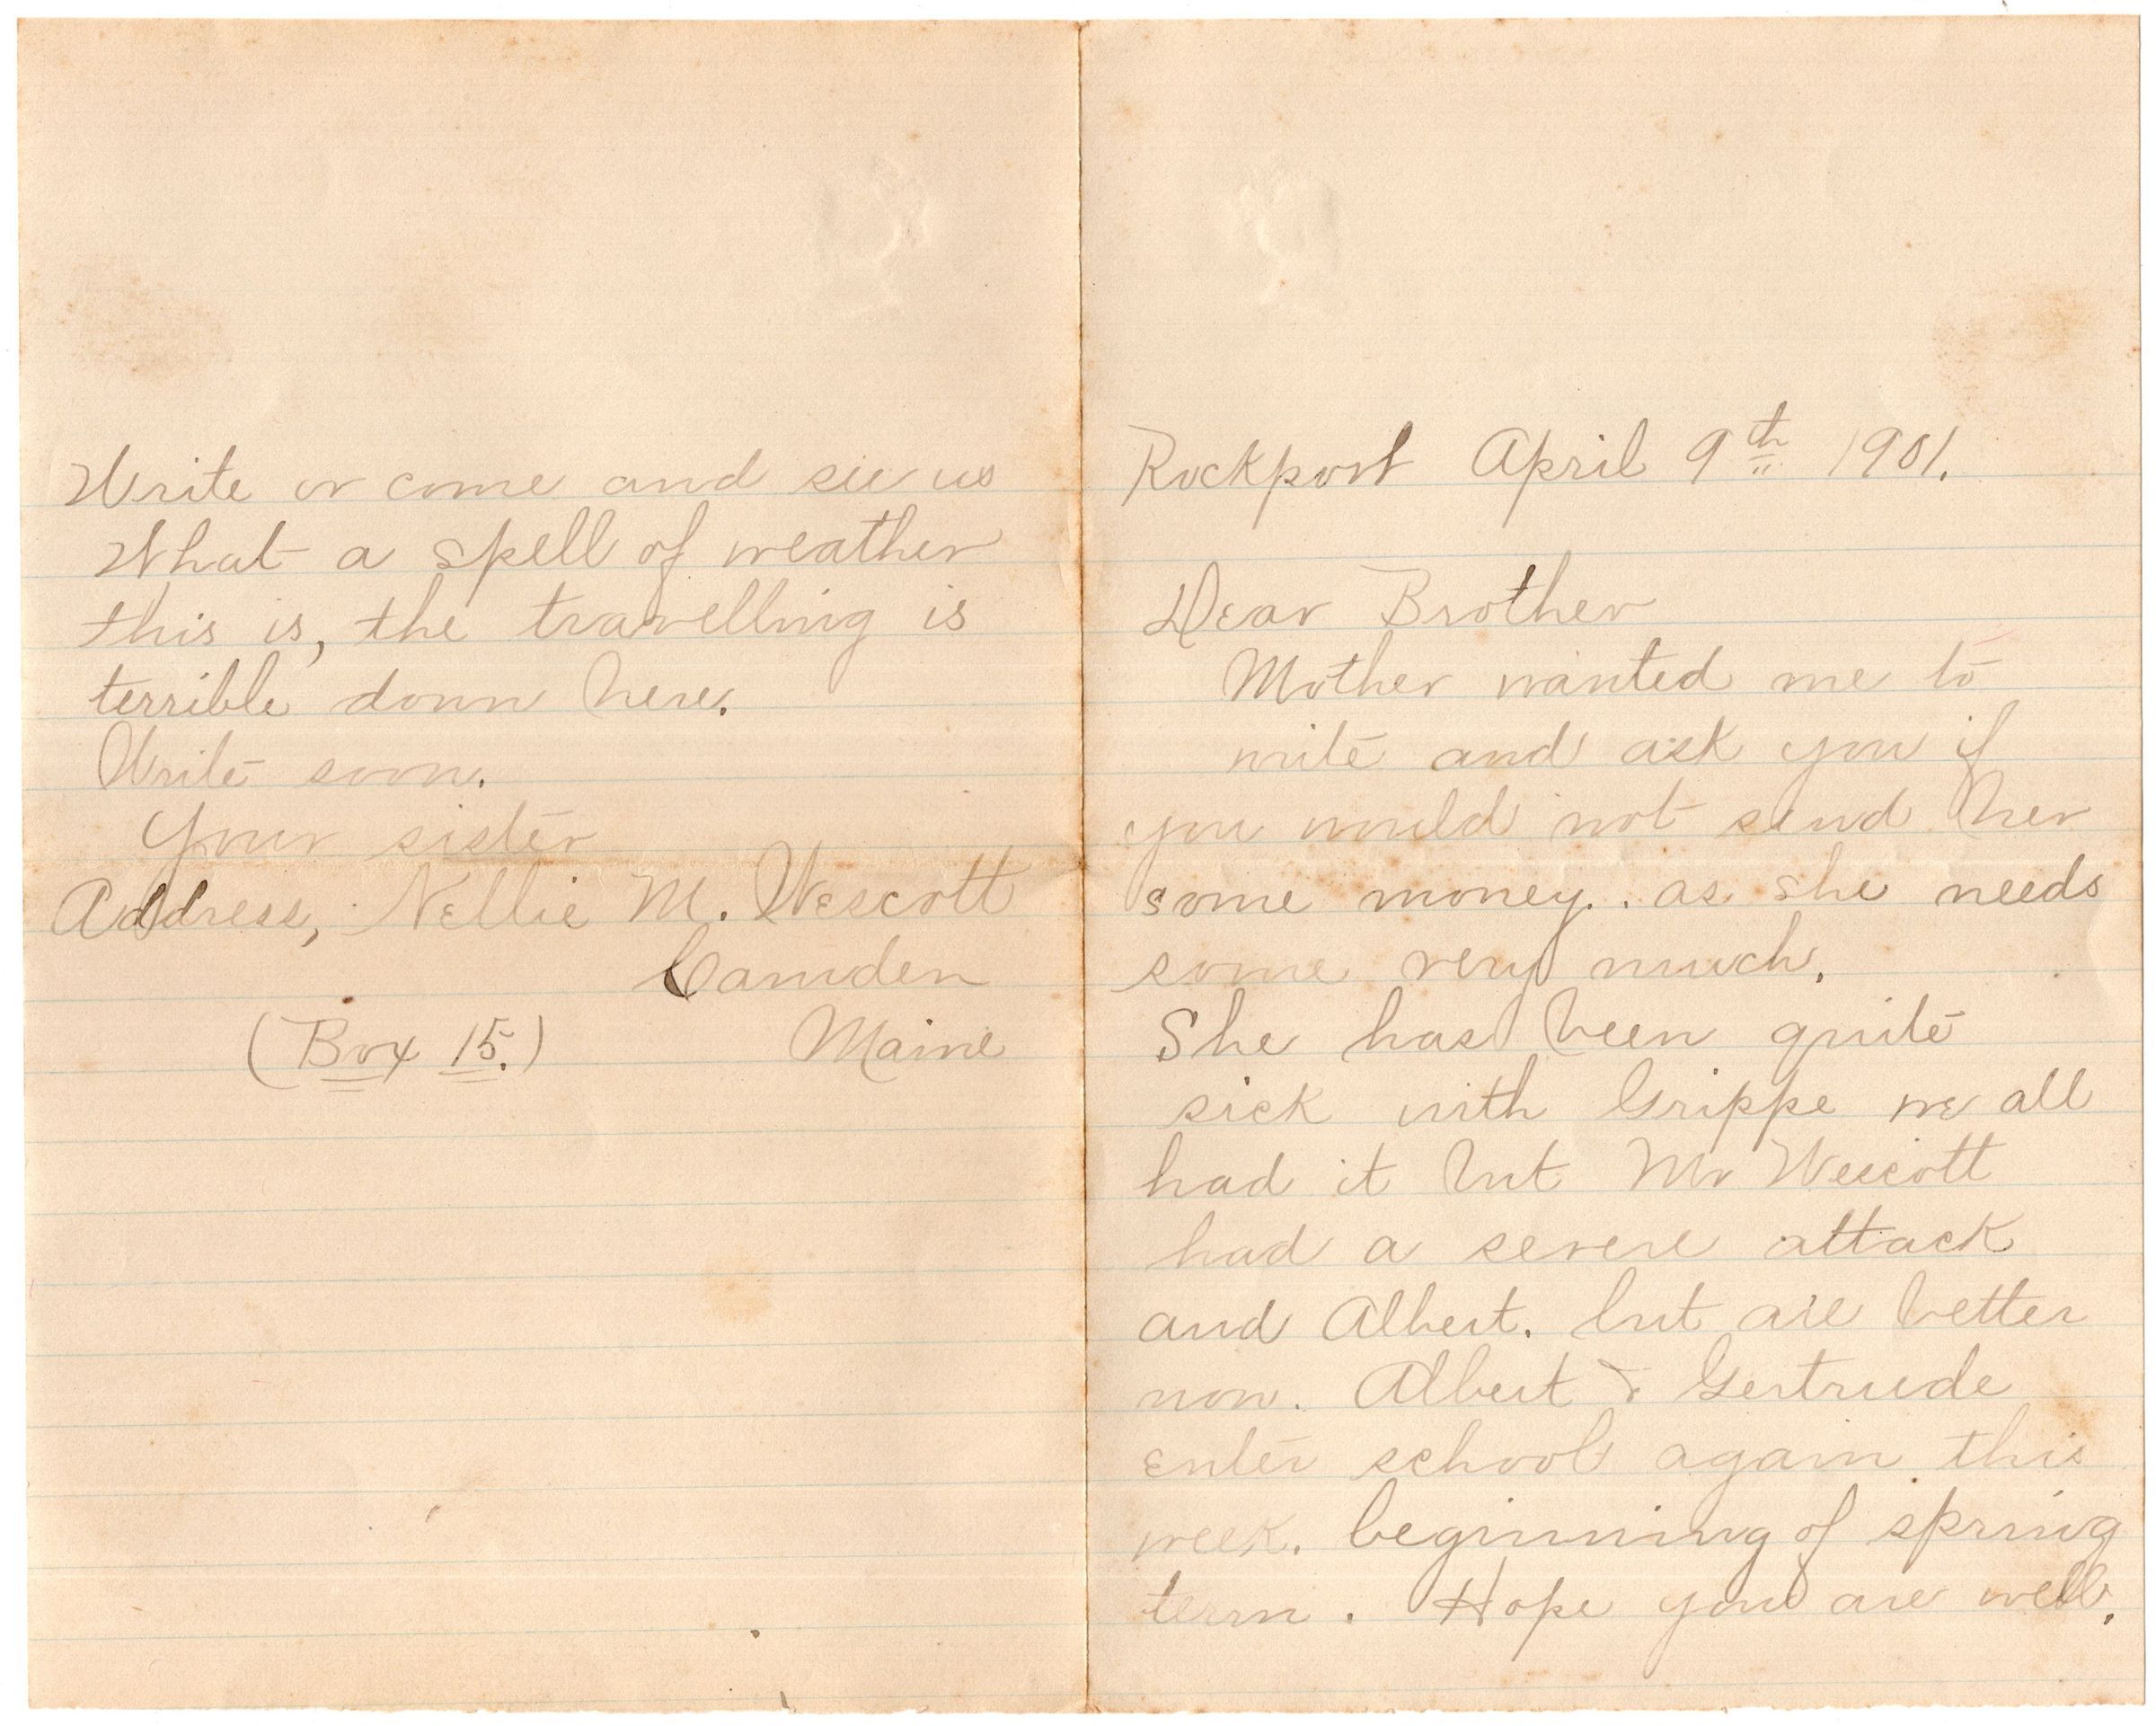 Rockport April 9th 1901.
Dear Brother
Mother wanted me to
write and ask you if
you would not send her
some money. . as she needs
some very much.
She has been quite
sick with Grippe we all
had it but Mr Wescott
had a severe attack
and Albert. but are better
now. Albert & Gertrude
enter school again this
week. beginning of spring
term. Hope you are well.
Write or come and see us
What a spell of weather
this is, the travelling is
terrible down here.
Write soon.
Your sister
Address, Nellie M. Wescott
Camden
(Box 15.) Maine